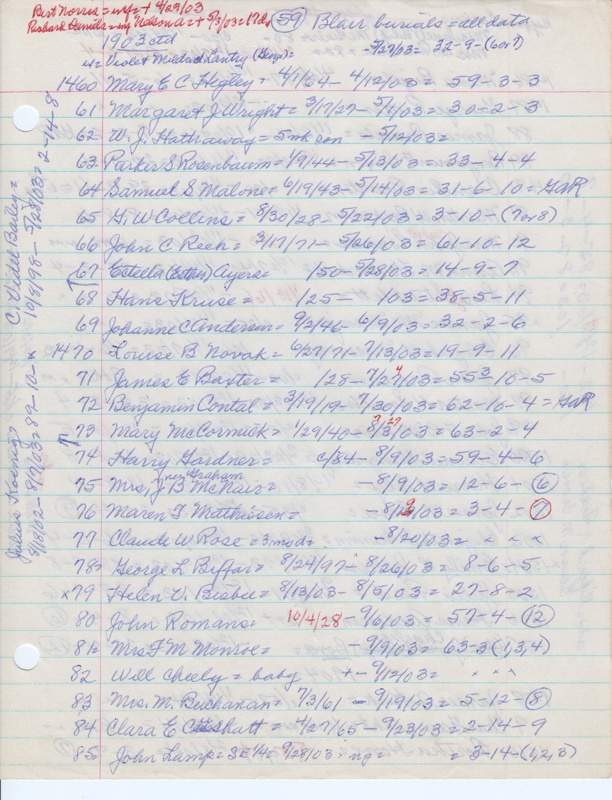 Bert Norris = 4/29/03
Richard Daniels = = + 5/3/03 = 17 da
59 Blair burials = all data
1903 ctd
Violet Mildred Lantry = - 4/27/03 = 32-9-(6 or 7)
1460 Mary E C Hegley = 4/1/64 - 4/12/03 = 59-3-3
61 Margaret J Wright = 3/17/27 - 5/1/03 = 30-2-3
62 W. J. Hathaway = 5 mk son - 5/12/03 =
63 Parker S Rosenbaum = 1/9/44 - 5/13/03 = 33-4-4
64 Samuel S Malone = 6/19/43 - 5/14/03 = 31-6-10 = GAR
65 G. W Collins = 8/30/28 - 5/22/03 = 3-10-(7 or 8)
66 John C Reeh = 3/17/71 - 5/26/03 = 61-10-12
67 Estella (Esther) Ayers = /50 - 5/28/03 = 14-9-7
68 Hans Kruse = /25 - /03 = 38-5-11
69 Johanne C Andersen = 9/2/46 - 6/9/03 = 32-2-6
1470 Louise B Novak = 6/27/71 - 7/13/03 = 19-9-11
71 James E Baxter = /28 - 7/27/03 = 55-10-5
72 Benjamin Contal = 3/19/19 - 7/30/03 = 62-10-4 = GAR
73 Mary McCormick = 1/29/40 - 8/3/03 = 63-2-4
74 Harry Gardner = c/84 - 8/9/03 = 59-4-6
nee Graham
75 Mrs. J B McNair = - 8/9/03 = 12-6-6
76 Maren F Mathiesen = - 8/ /03 = 3-4-7
77 Claude W Rose = 3 mo - 8/20/03 = " " "
78 George L Biffar = 8/24/97 - 8/26/03 = 8-6-5
x79 Helen V. Bisbee = 8/13/03 - 8/5/03 = 27-8-2
80 John Romans = 10/4/28 - 9/6/03 = 57-4-12
81 Mrs F M Monroe = - 9/9/03 = 63-3(1,3,4)
82 Will Cheely = baby + - 9/12/03 = " " "
83 Mrs. M. Buchanan = 7/3/61 - 9/19/03 = 5-12-8
84 Clara E Shatt = 4/27/65 - 9/23/03 = 2-14-9
85 John Lamp = SE 1/4 = 9/28/03 = ng = = 3-14-(1,2,3)
C. Videl Bailey =
10/8/98 - 5/28/03 = 2-14-8
Julius Koenig =
8/18/02 - 8/7/03 = 89-10-x